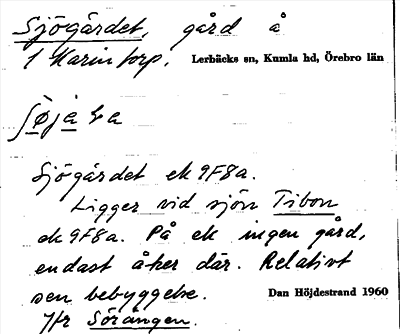 Sjögårdet, gård å
1 Karintorp. Lerbäcks sn, Kumla hd, Örebro län
Sjögårdet ek 9F8a.
Ligger vid sjön Tibon
ek 9F8a. På ek ingen gård,
endast åker där. Relativt
sen bebyggelse. Dan Höjdestrand 1960
Jfr Sörängen.